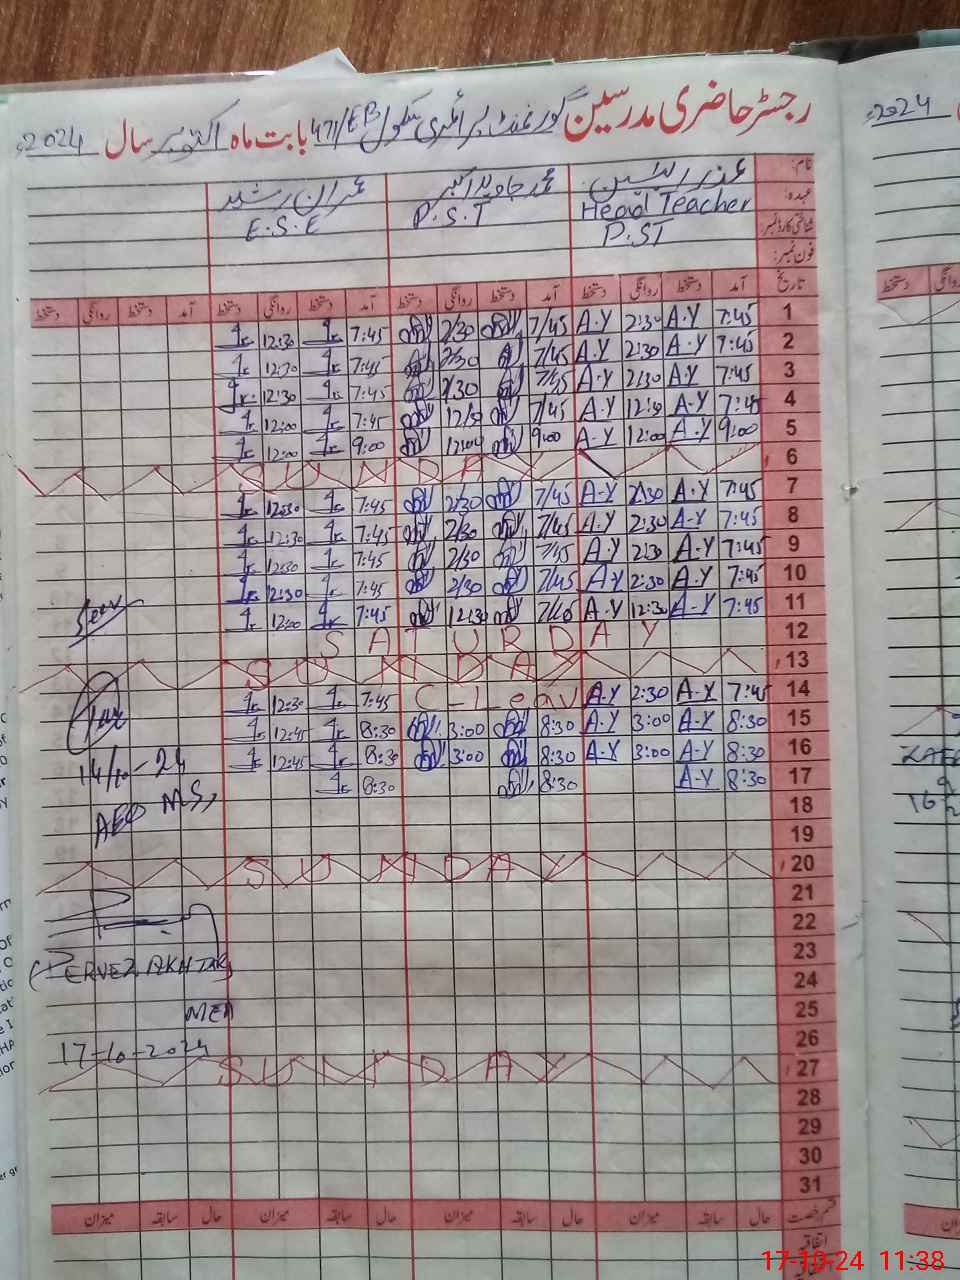 رجسٹر حاضری مدرسین گورنمنٹ پرائمری سکول 471/EB بابت ماہ اکتوبر سال 2024ء
نام:
محمد جاوید اکبر عمران رشید
عہدہ: Head Teacher P.S.T E.S.E
شناختی کارڈ نمبر: P.ST
فون نمبر:
تاریخ آمد دستخط روانگی دستخط آمد دستخط روانگی دستخط آمد دستخط روانگی دستخط آمد دستخط روانگی دستخط
1 7:45 A-Y 2:30 A-Y 7/45 2/30 7:45 12:30
2 7:45 A-Y 2:30 A-Y 7/45 2/30 7:45 12:30
3 7:45 A-Y 2:30 A-Y 7/45 2/30 7:45 12:30
4 7:45 A-Y 12:30 A-Y 7/45 12/30 7:45 12:00
5 9:00 A-Y 12:00 A-Y 9:00 12:00 9:00 12:00
6 SUNDAY
7 7:45 A-Y 2:30 A-Y 7/45 2/30 7:45 12:30
8 7:45 A-Y 2:30 A-Y 7/45 2/30 7:45 12:30
9 7:45 A-Y 2:30 A-Y 7/45 2/30 7:45 12:30
10 7:45 A-Y 2:30 A-Y 7/45 2/30 7:45 12:30
11 7:45 A-Y 12:30 A-Y 12:30 7:45 12:00
Seen
12 SATURDAY
13 SUNDAY
14 7:45 A-Y 2:30 A-Y C-Leav 7:45 12:30
15 8:30 A-Y 3:00 A-Y 8:30 3:00 8:30 12:45
16 8:30 A-Y 3:00 A-Y 8:30 3:00 8:30 12:45
14/10-24
17 8:30 A-Y 8:30 8:30
AEO MS,
18
19
20 SUNDAY
21
22
23
(PERVEZ AKHTAR)
24
25
MEA
26
17-10-2024
27 SUNDAY
28
29
30
31
قسم رخصت حال سابقہ میزان حال سابقہ میزان حال سابقہ میزان حال سابقہ میزان
اتفاقیہ
2024ء
17-10-24 11:38